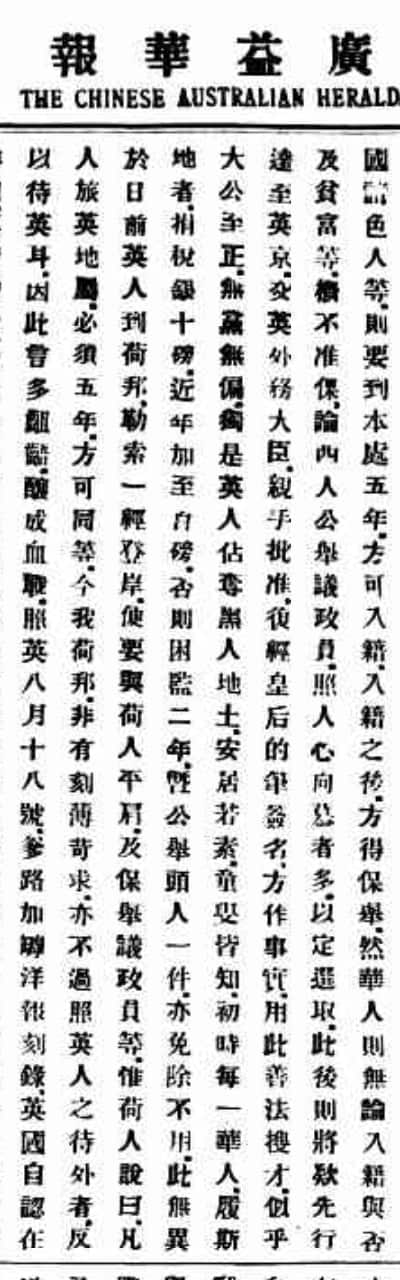 廣益華報
THE CHINESE AUSTRALIAN HERALD
國 色人等則要到本處五年方可入籍入籍之後方得保舉然華人則無論入籍與否
及貧富等 不准保論西人公舉議政員照人心向 者多以定選取此後則將欵先行
達至英京交英外務大臣親手批准後經皇后的筆簽名方作事實用此善法搜才似乎
大公至正無黨無偏獨是英人佔奪黑人地土安居若素童叟皆知初時每一華人履斯
地者捐稅銀十磅近年加至百磅否則困監二年暨公舉頭人一件亦免除不用此無異
於日前英人到荷邦勒索一經登岸便要與荷人平肩及保舉議政員等惟荷人說曰凡
人旅英地 必須五年方可同等今我荷邦非有刻薄苛求亦不過照英人之待外者反
以待英耳因此曾多齟齬釀成血戰照英八月十八號爹路加 洋報刻錄英國自認在